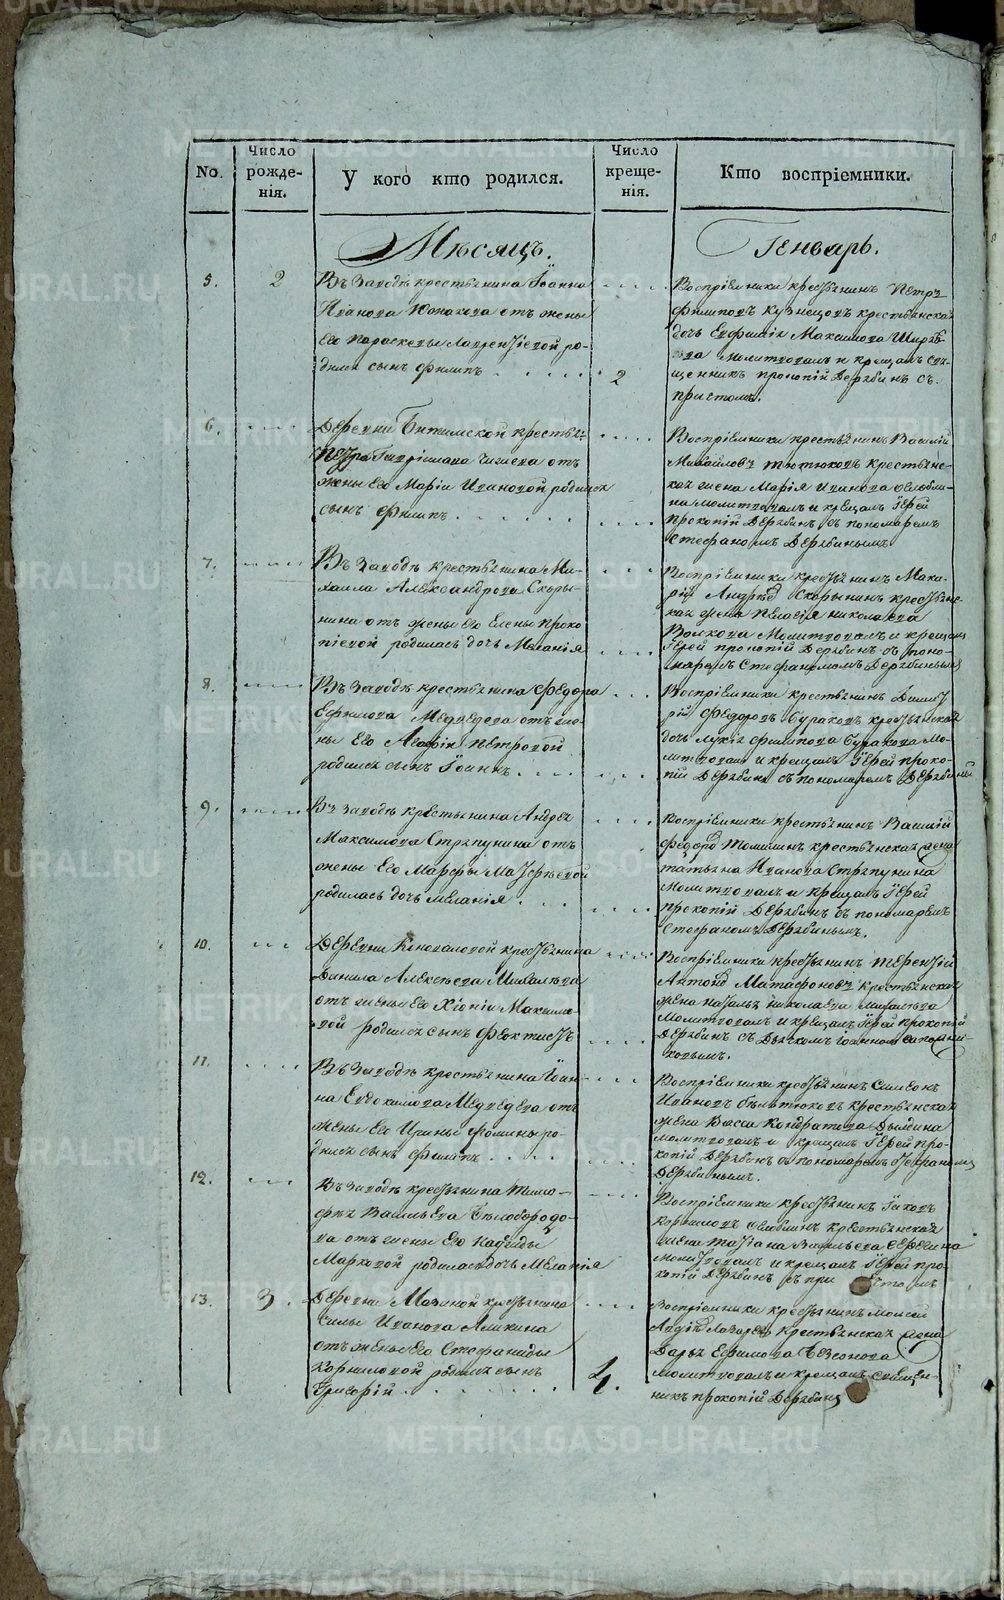 METRIKI.GASO-URAL.RU
No.
Число рожденія.
У кого кто родился.
Число крещенія.
Кто воспріемники.
Мѣсяцъ.
Генварь.
5.
2
Въ Заводѣ крестьянина Іоанна
Иванова отъ жены
Его Параскевы Лаврентіевой ро-
дился сынъ Филипъ
2
Воспріемники крестьянинъ Петръ
Филиповъ Кузнецовъ крестьянская
дочь Евфимія Максимова
молитвовалъ и крещалъ Свя-
щенникъ прокопій Дерябинъ съ
причтомъ.
6.
Деревни крестья:
Петра отъ
жены Его Маріи Ивановой родился
сынъ Филипъ
Воспріемники крестьянинъ Василій
Михайловъ крестьянс-
кая жена Марія Иванова
молитвовалъ и крещалъ Іерей
прокопій Дерябинъ съ пономаремъ
Стефаномъ Дерябинымъ
7.
Въ Заводѣ крестьянина Ми-
хаила Александрова Скоры-
нина отъ жены Его Елены Проко-
піевой родилась дочь Меланія
Воспріемники крестьянинъ Мака-
рій Скорынинъ крестьянс-
кая жена Пелагія николаева
Волкова Молитвовалъ и крещалъ
Іерей прокопій Дерябинъ съ поно-
маремъ Стефаномъ Дерябинымъ
8.
Въ Заводѣ крестьянина Федора
Ефимова Медведева отъ же-
ны Его Агафіи Петровой
родился сынъ Іоаннъ
Воспріемники крестьянинъ Димит-
рій Федоровъ Бураковъ крестьянская
дочь филипова Буракова мо-
литвовалъ и крещалъ Іерей проко-
пій Дерябинъ съ пономаремъ Дерябинымъ
9.
Въ заводѣ крестьянина Андрея
Максимова Стряпунина отъ
жены Его Марфы Матфеевой
родилась дочь Меланія
Воспріемники крестьянинъ Василій
Федоровъ крестьянская жена
татьяна Иванова Стряпунина
Молитвовалъ и крещалъ Іерей
прокопій Дерябинъ съ пономаремъ
Стефаномъ Дерябинымъ.
10.
Деревни крестьянина
Данила Алексеева Михалева
отъ жены Его Хіоніи Максимо-
вой родился сынъ Феоктистъ
Воспріемники крестьянинъ Терентій
крестьянская
жена наталья николаева михалева
Молитвовалъ и крещалъ Іерей прокопій
Дерябинъ съ Дьячкомъ Іоанномъ Сапожни-
ковымъ.
11.
Въ Заводѣ крестьянина Іоан-
на Евдокимова Медведева отъ
жены Его Ирины Фомины ро-
дился сынъ Филипъ
Воспріемники крестьянинъ Симеонъ
Ивановъ крестьянская
жена Васса Кондратьева
молитвовалъ и крещалъ Іерей про-
копій Дерябинъ съ пономаремъ Стефаномъ
Дерябинымъ.
12.
Въ Заводѣ крестьянина Тимо-
фея Васильева Белобородо-
ва отъ жены Его Надежды
Марковой родилась дочь Меланія
Воспріемники крестьянинъ Іаковъ
Корниловъ крестьянская
жена Татіана Васильева
Молитвовалъ и крещалъ Іерей про-
копій Дерябинъ съ причтомъ
13.
3.
Деревни Мазиной крестьянина
Силы Иванова Аликина
отъ жены Его Стефаниды
Корниловой родился сынъ
Григорій
4.
Воспріемники крестьянинъ Моисей
Лазаревъ крестьянская жена
Дарья Ефимова
молитвовалъ и крещалъ Священ-
никъ прокопій Дерябинъ